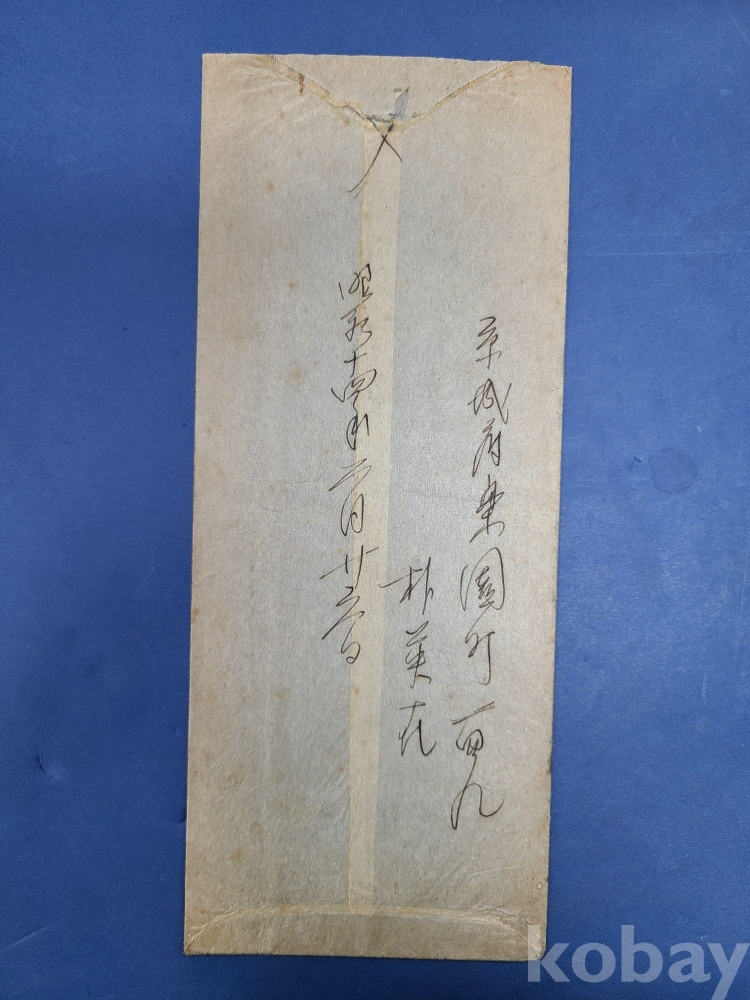 京城府樂園町一四九
朴英在
昭和十四年二月廿六日
kobay